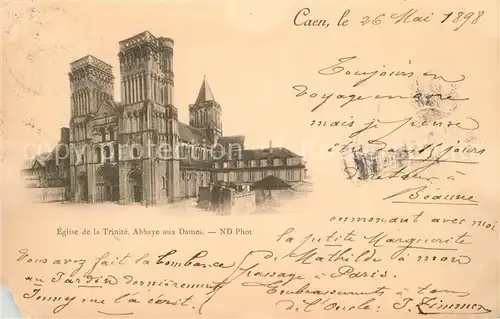 Caen, le 26 Mai 1898
Toujours en
voyage
mais je pense
être dans jours
à
Beaune
emmenant avec moi
la petite Marguerite
de Mathilde à mon
passage à Paris.
Embrassements à tous
de l'Oncle. J. Zimmer
Église de la Trinité. Abbaye aux Dames. — ND Phot
Vous avez fait la bombance
au Jardin dernièrement
Jenny me l'a écrit.